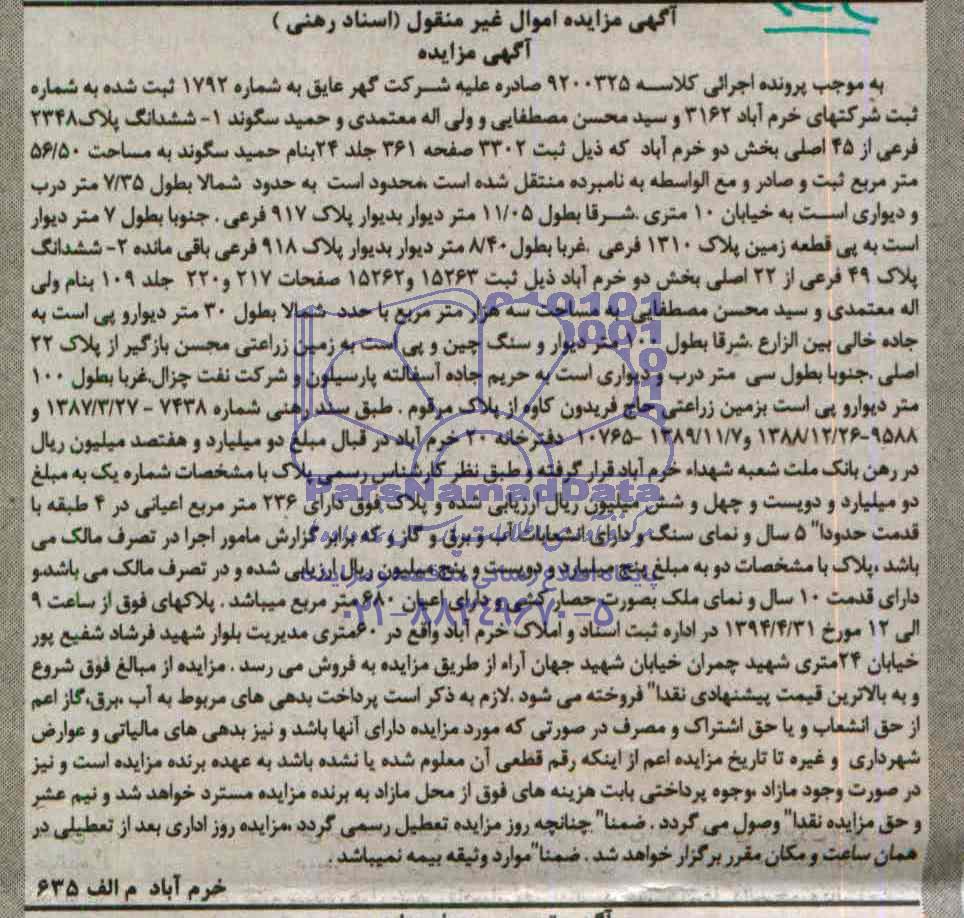 آگهی مزایده اموال غیر منقول (اسناد رهنی )
آگهی مزایده
به موجب پرونده اجرائی کلاسه ۹۲۰۰۳۲۵ صادره علیه شرکت گهر عایق به شماره ۱۷۹۲ ثبت شده به شماره
ثبت شرکتهای خرم آباد ۳۱۶۲ و سید محسن مصطفایی و ولی اله معتمدی و حمید سگوند ۱- ششدانگ پلاک۲۳۴۸
فرعی از ۴۵ اصلی بخش دو خرم آباد که ذیل ثبت ۳۳۰۲ صفحه ۳۶۱ جلد ۲۴بنام حمید سگوند به مساحت ۵۶/۵۰
متر مربع ثبت و صادر و مع الواسطه به نامبرده منتقل شده است ،محدود است به حدود شمالا بطول ۷/۳۵ متر درب
و دیواری است به خیابان ۱۰ متری .شرقا بطول ۱۱/۰۵ متر دیوار بدیوار پلاک ۹۱۷ فرعی . جنوبا بطول ۷ متر دیوار
است به پی قطعه زمین پلاک ۱۳۱۰ فرعی .غربا بطول۸/۴۰ متر دیوار بدیوار پلاک ۹۱۸ فرعی باقی مانده ۲- ششدانگ
پلاک ۴۹ فرعی از ۲۲ اصلی بخش دو خرم آباد ذیل ثبت ۱۵۲۶۳ و۱۵۲۶۲ صفحات ۲۱۷ و۲۲۰ جلد ۱۰۹ بنام ولی
اله معتمدی و سید محسن مصطفایی به مساحت سه هزار متر مربع با حدد شمالا بطول ۳۰ متر دیوارو پی است به
جاده خالی بین الزارع .شرقا بطول ۱۰۰ متر دیوار و سنگ چین و پی است به زمین زراعتی محسن بازگیر از پلاک ۲۲
اصلی .جنوبا بطول سی متر درب و دیواری است به حریم جاده آسفالته پارسیلون و شرکت نفت چزال.غربا بطول ۱۰۰
متر دیوارو پی است بزمین زراعتی حاج فریدون کاوه از پلاک مرقوم . طبق سند رهنی شماره ۷۴۳۸ - ۱۳۸۷/۳/۲۷ و
۹۵۸۸-۱۳۸۸/۱۲/۲۶ و۱۳۸۹/۱۱/۷ -۱۰۷۶۵ دفترخانه ۲۰ خرم آباد در قبال مبلغ دو میلیارد و هفتصد میلیون ریال
در رهن بانک ملت شعبه شهداء خرم آباد قرار گرفته و طبق نظر کارشناس رسمی پلاک با مشخصات شماره یک به مبلغ
دو میلیارد و دویست و چهل و شش میلیون ریال ارزیابی شده و پلاک فوق دارای ۲۳۶ متر مربع اعیانی در ۴ طبقه با
قدمت حدودا" ۵ سال و نمای سنگ و دارای انشعابات آب و برق و گاز و که برابر گزارش مامور اجرا در تصرف مالک می
باشد ،پلاک با مشخصات دو به مبلغ پنج میلیارد و دویست و پنج میلیون ریال ارزیابی شده و در تصرف مالک می باشدو
دارای قدمت ۱۰ سال و نمای ملک بصورت حصار کشی و دارای اعیان ۶۸۰ متر مربع میباشد . پلاکهای فوق از ساعت ۹
الی ۱۲ مورخ ۱۳۹۴/۴/۳۱ در اداره ثبت اسناد و املاک خرم آباد واقع در ۶۰متری مدیریت بلوار شهید فرشاد شفیع پور
خیابان ۲۴متری شهید چمران خیابان شهید جهان آراء از طریق مزایده به فروش می رسد . مزایده از مبالغ فوق شروع
و به بالاترین قیمت پیشنهادی نقدا" فروخته می شود .لازم به ذکر است پرداخت بدهی های مربوط به آب ،برق،گاز اعم
از حق انشعاب و یا حق اشتراک و مصرف در صورتی که مورد مزایده دارای آنها باشد و نیز بدهی های مالیاتی و عوارض
شهرداری و غیره تا تاریخ مزایده اعم از اینکه رقم قطعی آن معلوم شده یا نشده باشد به عهده برنده مزایده است و نیز
در صورت وجود مازاد ،وجوه پرداختی بابت هزینه های فوق از محل مازاد به برنده مزایده مسترد خواهد شد و نیم عشر
و حق مزایده نقدا" وصول می گردد . ضمنا" چنانچه روز مزایده تعطیل رسمی گردد ،مزایده روز اداری بعد از تعطیلی در
همان ساعت و مکان مقرر برگزار خواهد شد . ضمنا"موارد وثیقه بیمه نمیباشد .
خرم آباد م الف ۶۳۵
ParsNamadData
۰۲۱-۸۸۳۴۹۶۷۰-۵